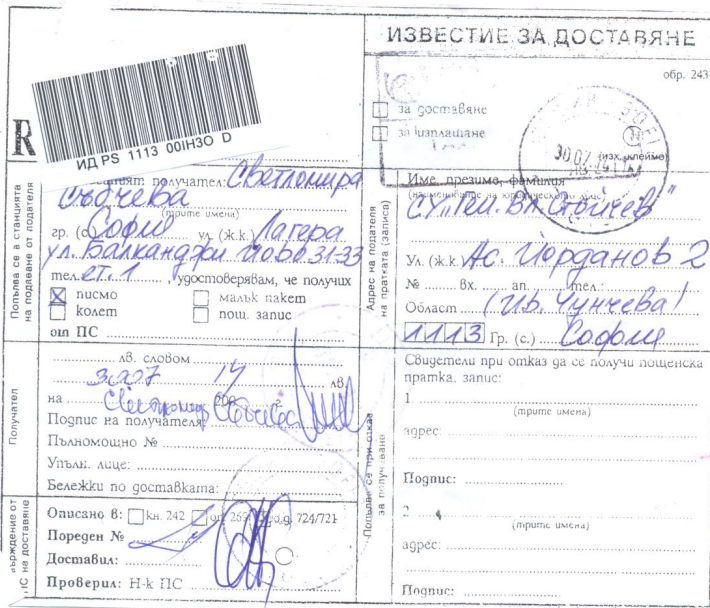 ИЗВЕСТИЕ ЗА ДОСТАВЯНЕ
обр. 243
R
ИД PS 1113 00IH3O D
за доставяне
за изплащане
(изх. клеймо)
Попълва се в станцията на подаване от подателя
получател: Светломира
Събчева
(трите имена)
гр. (с.) София ул. (ж.к.) Лагера
ул. Балканджи Йово 31-33
тел. ет. 1, удостоверявам, че получих
писмо
малък пакет
колет
пощ. запис
от ПС
Адрес на подателя на пратката (записа)
Име, презиме, фамилия
(наименование на юридическото лице)
СУ "Ген. Вл. Стойчев"
Ул. (ж.к.) Ас. Йорданов 2
№ вх. ап. тел.:
Област (Ив. Чунчева)
1113 Гр. (с.) София
Получател
лв. словом
лв.
на 30.07 14
Подпис на получателя
Пълномощно №
Упълн. лице:
Бележки по доставката:
Попълва се при отказ за получаване
Свидетели при отказ да се получи пощенска
пратка, запис:
1
(трите имена)
адрес:
Подпис:
2
(трите имена)
адрес:
Подпис:
ПС на доставяне
Описано в: кн. 242 724/721
Пореден №
Доставил:
Проверил: Н-к ПС